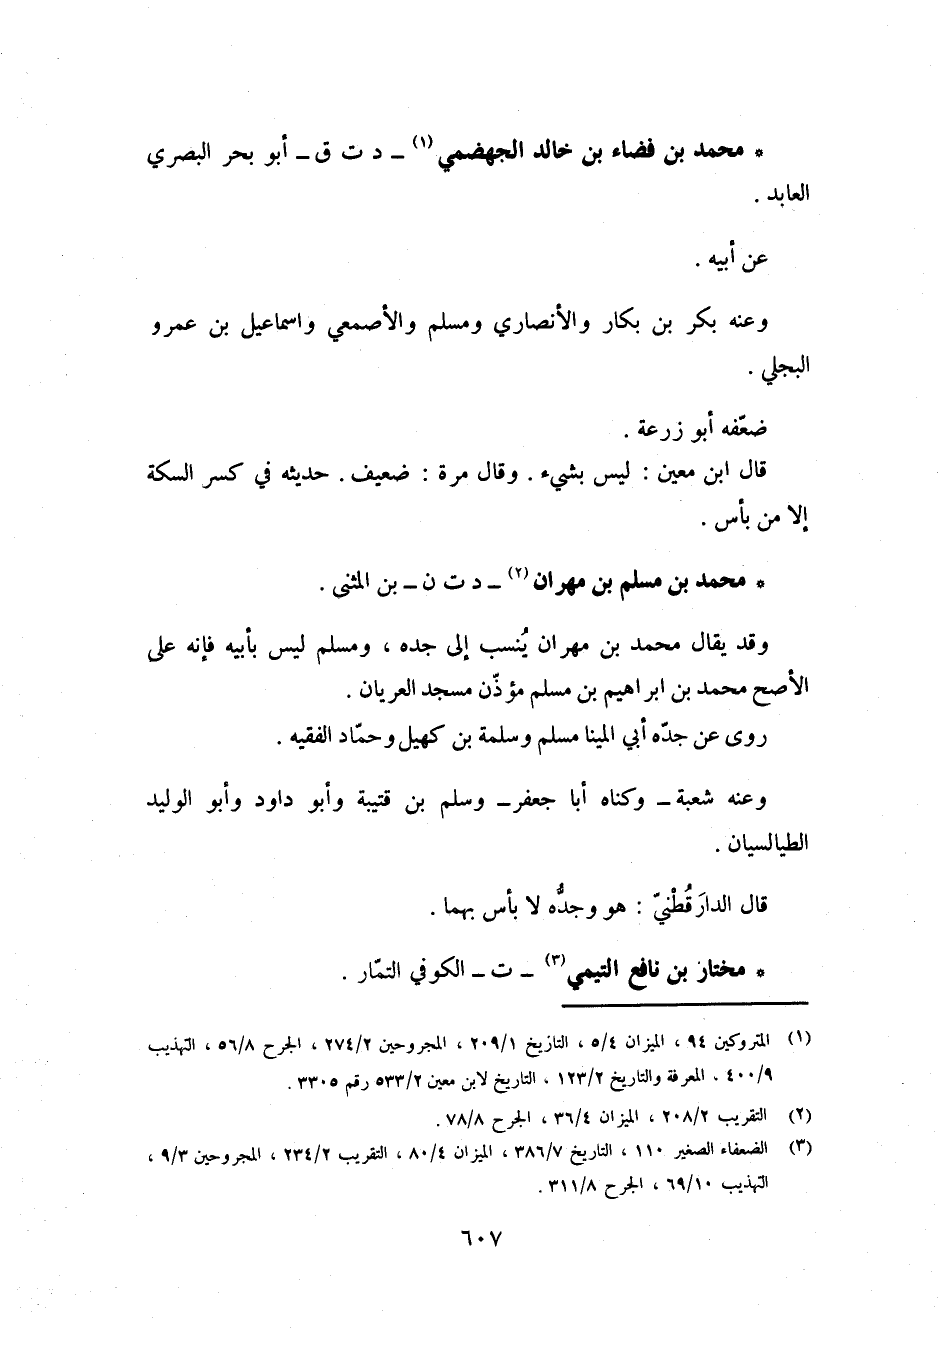 * محمد بن فضاء بن خالد الجهضمي (١) ـ د ت ق ـ أبو بحر البصري
العابد .
عن أبيه .
وعنه بكر بن بكار والأنصاري ومسلم والأصمعي واسماعيل بن عمرو
البجلي .
ضعّفه أبو زرعة .
قال ابن معين : ليس بشيء . وقال مرة : ضعيف . حديثه في كسر السكة
إلا من بأس .
* محمد بن مسلم بن مهران (٢) ـ د ت ن ـ بن المثنى .
وقد يقال محمد بن مهران يُنسب إلى جده ، ومسلم ليس بأبيه فإنه على
الأصح محمد بن ابراهيم بن مسلم مؤذّن مسجد العريان .
روى عن جدّه أبي المينا مسلم وسلمة بن كهيل وحمّاد الفقيه .
وعنه شعبة ـ وكناه أبا جعفر ـ وسلم بن قتيبة وأبو داود وأبو الوليد
الطيالسيان .
قال الدارَقُطْنيّ : هو وجدُّه لا بأس بهما .
* مختار بن نافع التيمي (٣) ـ ت ـ الكوفي التمّار .
(١) المتروكين ٩٤ ، الميزان ٥/٤ ، التاريخ ٢٠٩/١ ، المجروحين ٢٧٤/٢ ، الجرح ٥٦/٨ ، التهذيب
٤٠٠/٩ ، المعرفة والتاريخ ١٢٣/٢ ، التاريخ لابن معين ٥٣٣/٢ رقم ٣٣٠٥ .
(٢) التقريب ٢٠٨/٢ ، الميزان ٣٦/٤ ، الجرح ٧٨/٨ .
(٣) الضعفاء الصغير ١١٠ ، التاريخ ٣٨٦/٧ ، الميزان ٨٠/٤ ، التقريب ٢٣٤/٢ ، المجروحين ٩/٣ ،
التهذيب ٦٩/١٠ ، الجرح ٣١١/٨ .
٦٠٧